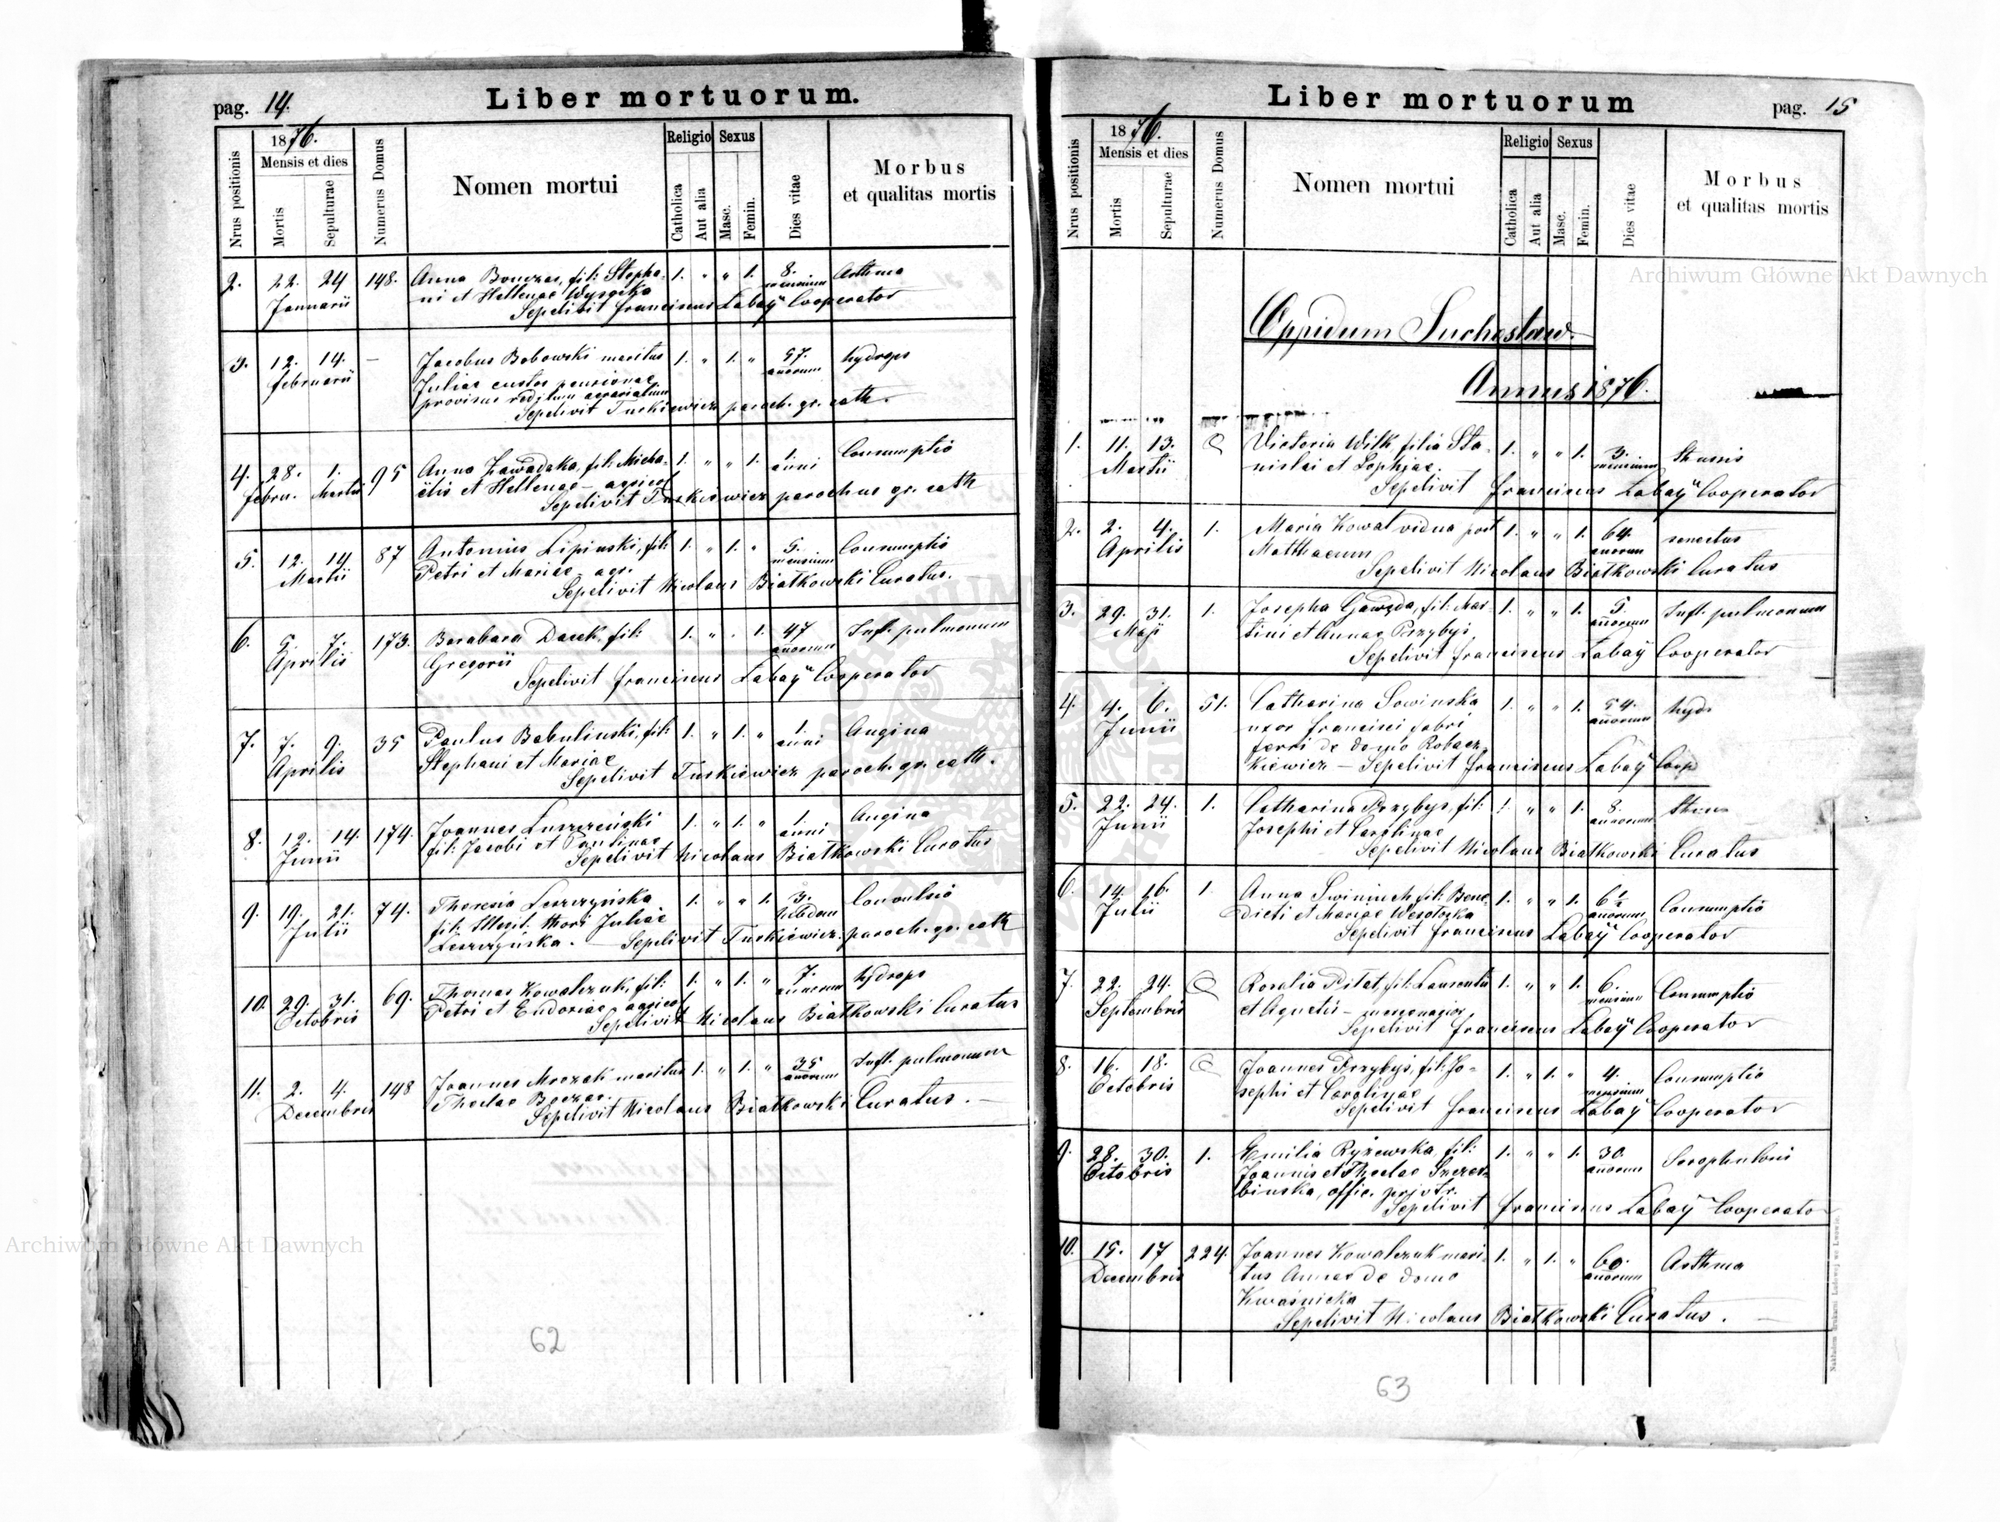 pag. 14.
Liber mortuorum.
Nrus positionis
1876.
Mensis et dies
Mortis
Sepulturae
Numerus Domus
Nomen mortui
Religio
Catholica
Aut alia
Sexus
Masc.
Femin.
Dies vitae
Morbus
et qualitas mortis
2. 22. 24 148. Anna Bouczas, fil: Stepha- 1. " " 1. 8. Asthma
Januarii ni et Hellenae Wysocka mensium
Sepelivit Franciscus Labaÿ Cooperator
3. 12. 14. — Jacobus Bobowski maritus 1. " 1. " 57. hydrops
Februarii Juliae custos pensionae anorum
provisus reditum aerarialium
Sepelivit Turkiewicz paroch. gr. cath.
4. 28. 1. 95 Anna Zawadzka, fil: Micha- 1. " " 1. 1. Consumptio
Febru. Martii ëlis et Hellenae – agricol anni
Sepelivit Turkiewicz parochus gr. cath
5. 12. 14. 87 Antonius Lipinski, fil: 1. " 1. " 5. Consumptio
Martii Petri et Mariae – agri. mensium
Sepelivit Nicolaus Białkowski Curatus.
6. 5. 7. 173. Barabara Dacek, fil: 1. " . 1. 47 Infl. pulmonum
Aprilis Gregorii anorum
Sepelivit Franciscus Labaÿ Cooperator
7. 7. 9. 35 Paulus Babulinski, fil: 1. " 1. " 1. Angina
Aprilis Stephani et Mariae anni
Sepelivit Turkiewicz paroch. gr. cath.
8. 12. 14. 174. Joannes Luszczeński 1. " 1. " 1. Angina
Junii fil: Jacobi et Paulinae anni
Sepelivit Nicolaus Białkowski Curatus
9. 19. 21. 74. Theresia Leszczyńska 1. " " 1. 3. Convulsio
Julii fil: illegit: thori Juliae hebdom
Leszczyńska. – Sepelivit Turkiewicz. paroch. gr. cath
10. 29. 31. 69. Thomas Kowalczuk, fil: 1. " 1. " 7. hydrops
Octobris Petri et Eudoxiae agricol anorum
Sepelivit Nicolaus Białkowski Curatus
11. 2. 4. 148 Joannes Mrozak maritus 1. " 1. " 35 Infl. pulmonum
Decembris Theclae anorum
Sepelivit Nicolaus Białkowski Curatus. –
62
Liber mortuorum
pag. 15
Nrus positionis
1876.
Mensis et dies
Mortis
Sepulturae
Numerus Domus
Nomen mortui
Religio
Catholica
Aut alia
Sexus
Masc.
Femin.
Dies vitae
Morbus
et qualitas mortis
Oppidum Suchostaw.
Annus 1876.
1. 11. 13. Victoria Wilk filia Sta- 1. " " 1. 3.
Martii nislai et Sophyae. mensium
Sepelivit Franciscus Labaÿ Cooperator
2. 2. 4. 1. Maria Kowal vidua post 1. " " 1. 64. senectus
Aprilis Matthaeum anorum
Sepelivit Nicolaus Białkowski Curatus
3. 29. 31. 1. Josepha Gawęda, fil: Mar- 1. " " 1. 5. Infl. pulmonum
Maji tini et Annae Przybys anorum
Sepelivit Franciscus Labaÿ Cooperator
4. 4. 6. 51. Catharina Sowinska 1. " " 1. 54.
Junii uxor Francisci fabri anorum
ferri de domo Robacz-
kiewicz – Sepelivit Franciscus Labaÿ Coop
5. 22. 24. 1. Catharina Przybys, fil: 1. " " 1. 8.
Junii Josephi et Carolinae anorum
Sepelivit Nicolaus Białkowski Curatus
6. 14. 16. 1. Anna Swiniuch fil: Bene- 1. " " 1. 6½ Consumptio
Julii dicti et Mariae Wesołozka anorum
Sepelivit Franciscus Labaÿ Cooperator
7. 22. 24. Rosalia Pitat, fil: Laurentii 1. " " 1. 6. Consumptio
Septembris et Agnetis – mensium
Sepelivit Franciscus Labaÿ Cooperator
8. 16. 18. Joannes Przybys, fil: Jo- 1. " 1. " 4. Consumptio
Octobris sephi et Carolinae mensium
Sepelivit Franciscus Labaÿ Cooperator
9. 28. 30. 1. Emilia Ryżewska, fil: 1. " " 1. 30.
Octobris Joannis et Theclae Szczer- anorum
binska, offic.
Sepelivit Franciscus Labaÿ Cooperator
10. 15. 17 224. Joannes Kowalczuk mari- 1. " 1. " 60. Asthma
Decembris tus Annae de domo anorum
Kwaśnicka
Sepelivit Nicolaus Białkowski Curatus. –
63
Archiwum Główne Akt Dawnych
Archiwum Główne Akt Dawnych